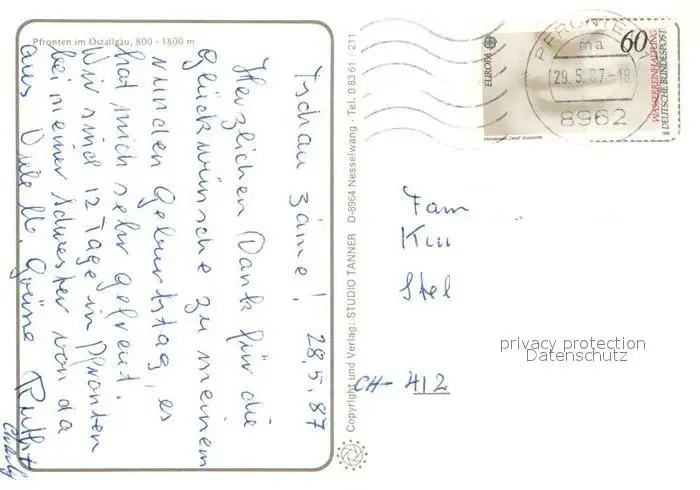 Pfronten im Ostallgäu, 800 - 1800 m
Tschau zäme! 28.5.87
Herzlichen Dank für die
Glückwünsche zu meinem
runden Geburtstag, es
hat mich sehr gefreut.
Wir sind 12 Tage in Pfronten
bei meiner Schwester von da
aus Viele lb. Grüsse Ruth +
Copyright und Verlag: STUDIO TANNER D-8964 Nesselwang · Tel. 08361 / 211
EUROPA
60
WASSERREINHALTUNG
DEUTSCHE BUNDESPOST
PFRONTEN 1
ma
29.5.87-18
8962
Fam
Stel
CH- 412
privacy protection
Datenschutz